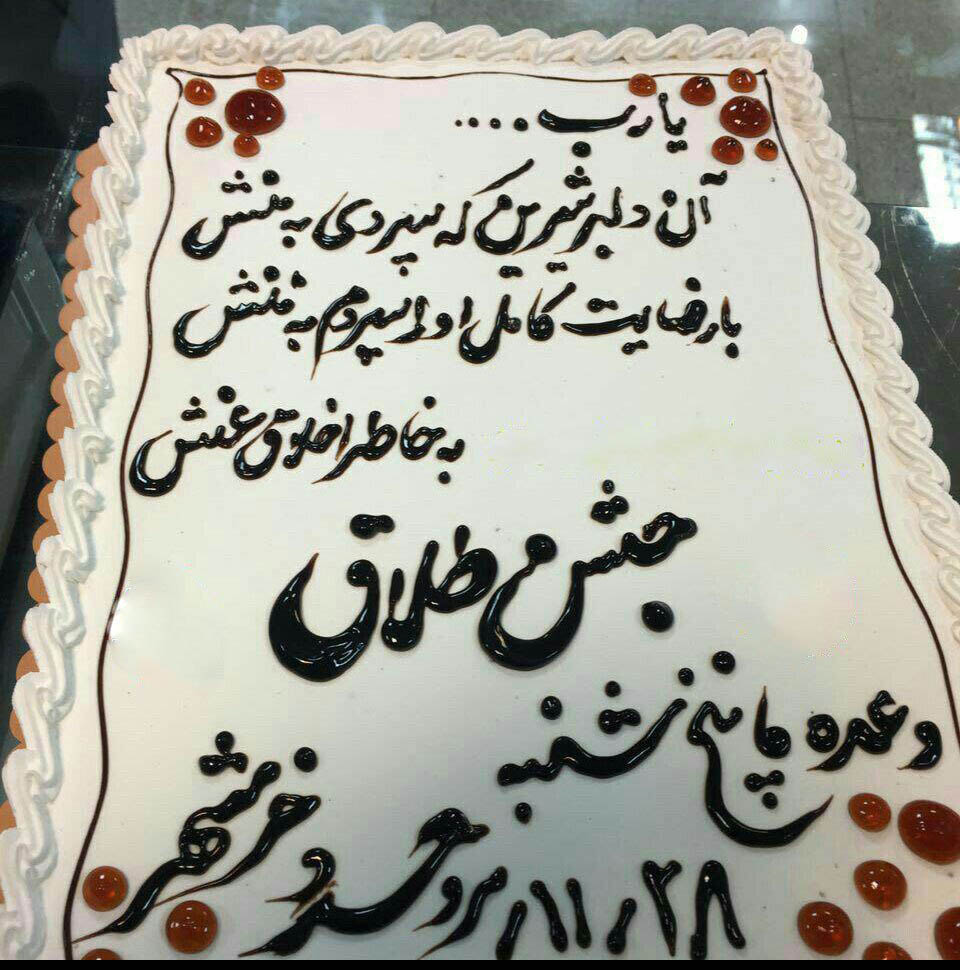 یا رب ....
آن دلبر شیرین که سپردی به منش
با رضایت کامل او را سپردم به ننش
به خاطر اخلاق غنش
جشن طلاق
وعده پانج شنبه
۲۸/۱۱/ خرمشهر